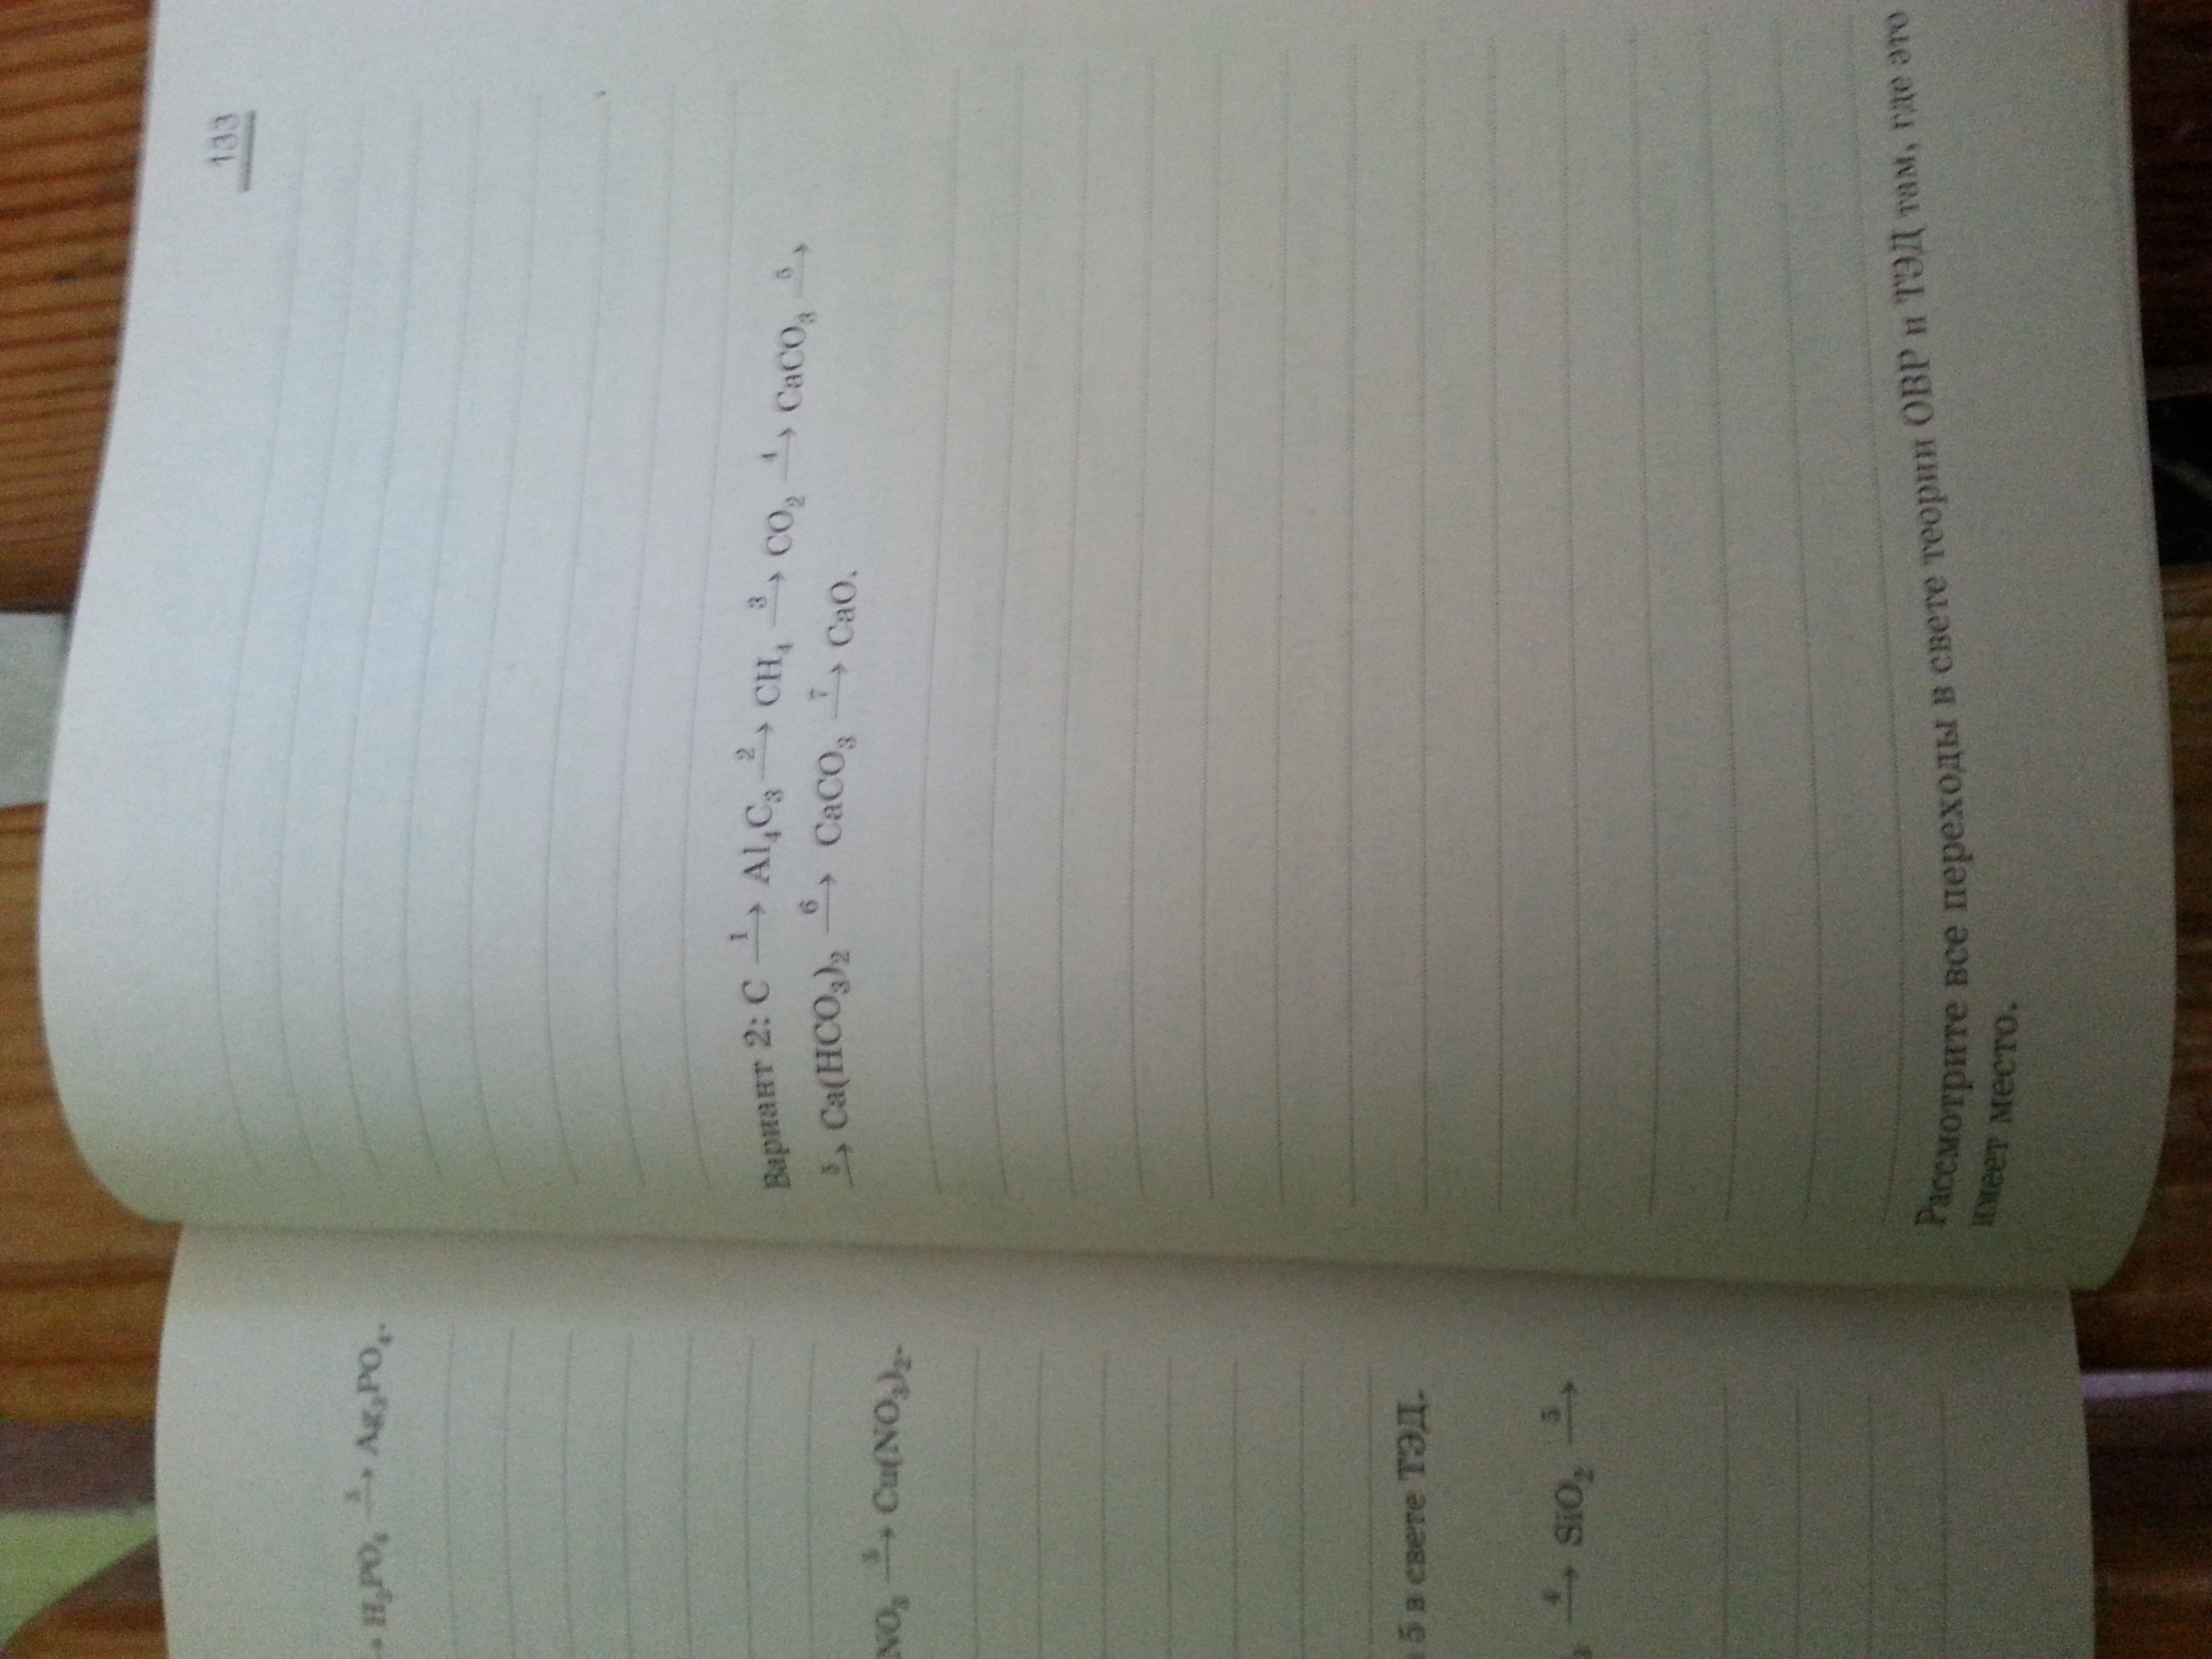 → H₃PO₄ —5→ Ag₃PO₄.
NO₃ —5→ Cu(NO₃)₂.
5 в свете ТЭД.
—4→ SiO₂ —5→
133
Вариант 2: C —1→ Al₄C₃ —2→ CH₄ —3→ CO₂ —4→ CaCO₃ —5→
—5→ Ca(HCO₃)₂ —6→ CaCO₃ —7→ CaO.
Рассмотрите все переходы в свете теории ОВР и ТЭД там, где это
имеет место.